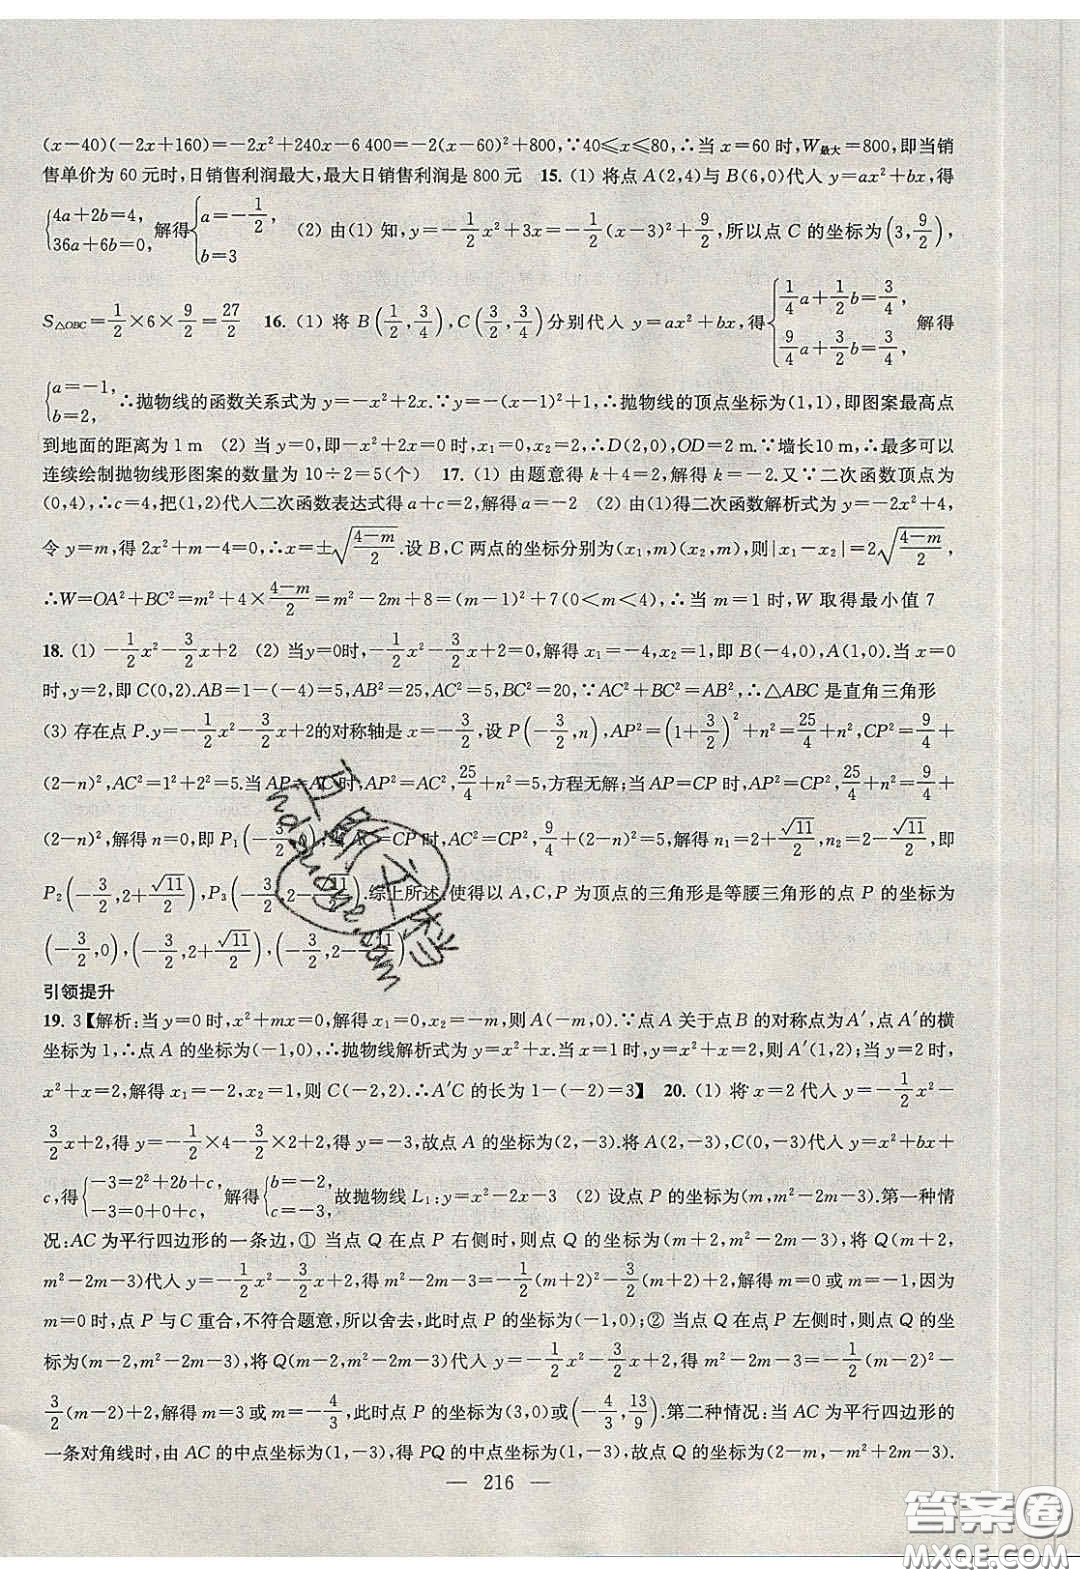 (x−40)(−2x+160)=−2x²+240x−6 400=−2(x−60)²+800,∵40⩽x⩽80,∴当 x=60 时,W最大=800,即当销
售单价为 60 元时,日销售利润最大,最大日销售利润是 800 元 15. (1) 将点 A(2,4)与 B(6,0)代入 y=ax²+bx,得
{4a+2b=4, 36a+6b=0, 解得{a=−1/2, b=3 (2) 由(1) 知,y=−1/2x²+3x=−1/2(x−3)²+9/2,所以点 C 的坐标为(3,9/2),
S△OBC=1/2×6×9/2=27/2 16. (1) 将 B(1/2,3/4),C(3/2,3/4)分别代入 y=ax²+bx,得{1/4a+1/2b=3/4, 9/4a+3/2b=3/4, 解得
{a=−1, b=2, ∴抛物线的函数关系式为 y=−x²+2x.∵y=−(x−1)²+1,∴抛物线的顶点坐标为(1,1),即图案最高点
到地面的距离为 1 m (2) 当 y=0,即−x²+2x=0 时,x₁=0,x₂=2,∴D(2,0),OD=2 m.∵墙长10 m,∴最多可以
连续绘制抛物线形图案的数量为 10÷2=5(个) 17. (1) 由题意得 k+4=2,解得 k=−2.又∵二次函数顶点为
(0,4),∴c=4,把(1,2)代入二次函数表达式得 a+c=2,解得 a=−2 (2) 由(1)得二次函数解析式为 y=−2x²+4,
令 y=m,得 2x²+m−4=0,∴x=±√((4−m)/2).设 B,C 两点的坐标分别为(x₁,m)(x₂,m),则|x₁−x₂|=2√((4−m)/2),
∴W=OA²+BC²=m²+4×(4−m)/2=m²−2m+8=(m−1)²+7(0<m<4),∴当 m=1 时,W 取得最小值 7
18. (1) −1/2x²−3/2x+2 (2) 当y=0时,−1/2x²−3/2x+2=0,解得 x₁=−4,x₂=1,即 B(−4,0),A(1,0).当 x=0
时,y=2,即 C(0,2).AB=1−(−4)=5,AB²=25,AC²=5,BC²=20,∵AC²+BC²=AB²,∴△ABC 是直角三角形
(3) 存在点 P.y=−1/2x²−3/2x+2的对称轴是 x=−3/2,设 P(−3/2,n),AP²=(1+3/2)²+n²=25/4+n²,CP²=9/4+
(2−n)²,AC²=1²+2²=5.当 AP=AC 时,AP²=AC²,25/4+n²=5,方程无解;当 AP=CP 时,AP²=CP²,25/4+n²=9/4+
(2−n)²,解得 n=0,即 P₁(−3/2,0);当 AC=CP 时,AC²=CP²,9/4+(2−n)²=5,解得 n₁=2+√11/2,n₂=2−√11/2,即
P₂(−3/2,2+√11/2),P₃(−3/2,2−√11/2).综上所述,使得以 A,C,P 为顶点的三角形是等腰三角形的点 P 的坐标为
(−3/2,0),(−3/2,2+√11/2),(−3/2,2−√11/2)
引领提升
19. 3【解析:当 y=0 时,x²+mx=0,解得 x₁=0,x₂=−m,则 A(−m,0).∵点 A 关于点 B 的对称点为A′,点 A′的横
坐标为 1,∴点 A 的坐标为(−1,0),∴抛物线解析式为 y=x²+x.当 x=1时,y=x²+x=2,则 A′(1,2);当 y=2 时,
x²+x=2,解得 x₁=−2,x₂=1,则 C(−2,2).∴A′C 的长为 1−(−2)=3】 20. (1) 将 x=2 代入 y=−1/2x²−
3/2x+2,得 y=−1/2×4−3/2×2+2,得 y=−3,故点 A 的坐标为(2,−3).将 A(2,−3),C(0,−3)代入 y=x²+bx+
c,得{−3=2²+2b+c, −3=0+0+c, 解得{b=−2, c=−3, 故抛物线 L₁:y=x²−2x−3 (2) 设点 P 的坐标为(m,m²−2m−3).第一种情
况:AC 为平行四边形的一条边,① 当点 Q 在点 P 右侧时,则点 Q 的坐标为(m+2,m²−2m−3),将 Q(m+2,
m²−2m−3)代入 y=−1/2x²−3/2x+2,得 m²−2m−3=−1/2(m+2)²−3/2(m+2)+2,解得 m=0或 m=−1,因为
m=0时,点 P 与C 重合,不符合题意,所以舍去,此时点 P 的坐标为(−1,0);② 当点 Q 在点 P 左侧时,则点 Q 的坐
标为(m−2,m²−2m−3),将 Q(m−2,m²−2m−3)代入 y=−1/2x²−3/2x+2,得 m²−2m−3=−1/2(m−2)²−
3/2(m−2)+2,解得 m=3 或 m=−4/3,此时点 P 的坐标为(3,0)或(−4/3,13/9).第二种情况:当 AC 为平行四边形的
一条对角线时,由 AC 的中点坐标为(1,−3),得 PQ 的中点坐标为(1,−3),故点 Q 的坐标为(2−m,−m²+2m−3).
— 216 —
答案圈
MXQE.COM